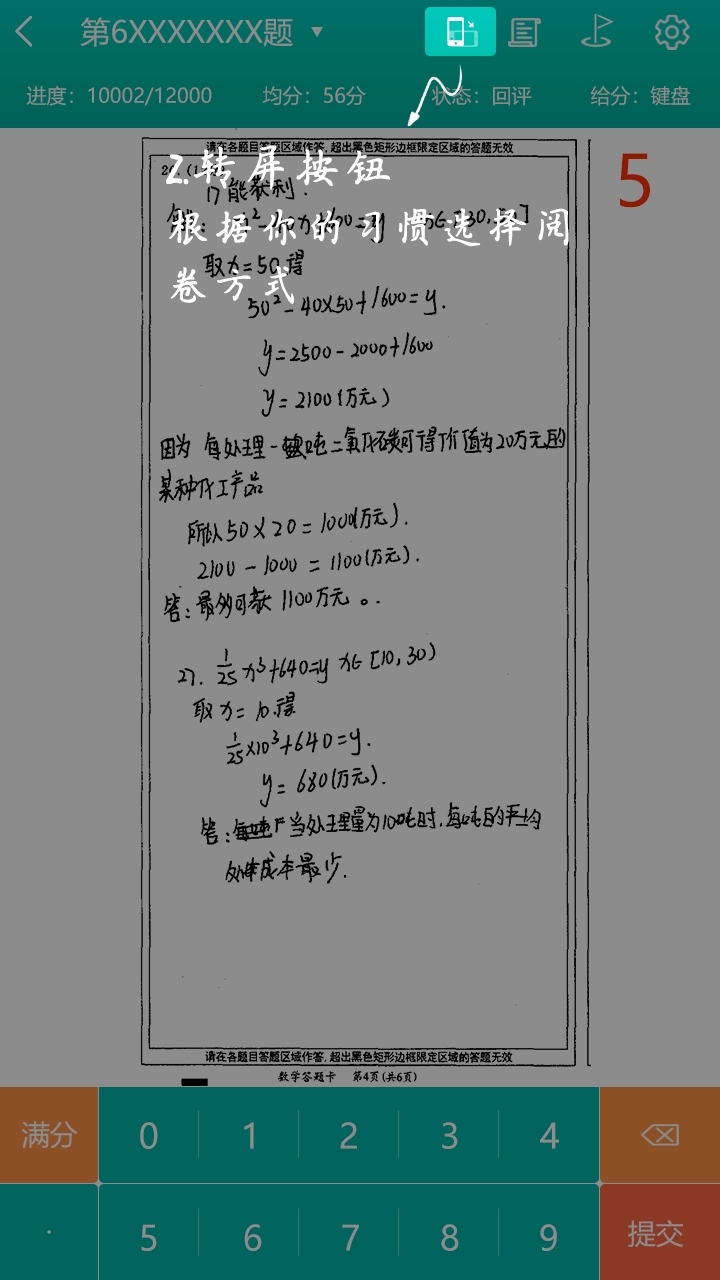 第6XXXXXXX题
进度：10002/12000 均分：56分 状态：回评 给分：键盘
请在各题目答题区域作答，超出黑色矩形边框限定区域的答题无效
5
2.转屏按钮
根据你的习惯选择阅
卷方式
能获利.
取x=50得
50²-40×50+1600=y.
y=2500-2000+1600
y=2100(万元)
因为 每处理一吨二氧化碳可得价值为20万元的
某种化工产品
所以50×20=1000(万元).
2100-1000=1100(万元).
答:最多可获 1100万元。.
27. 1/25 x³+640=y x∈[10,30)
取x=10得
1/25×10³+640=y.
y=680(万元).
答: 当处理量为10吨时,每吨的平均
处理成本最少.
请在各题目答题区域作答，超出黑色矩形边框限定区域的答题无效
数学答题卡 第4页(共6页)
满分 0 1 2 3 4
· 5 6 7 8 9 提交